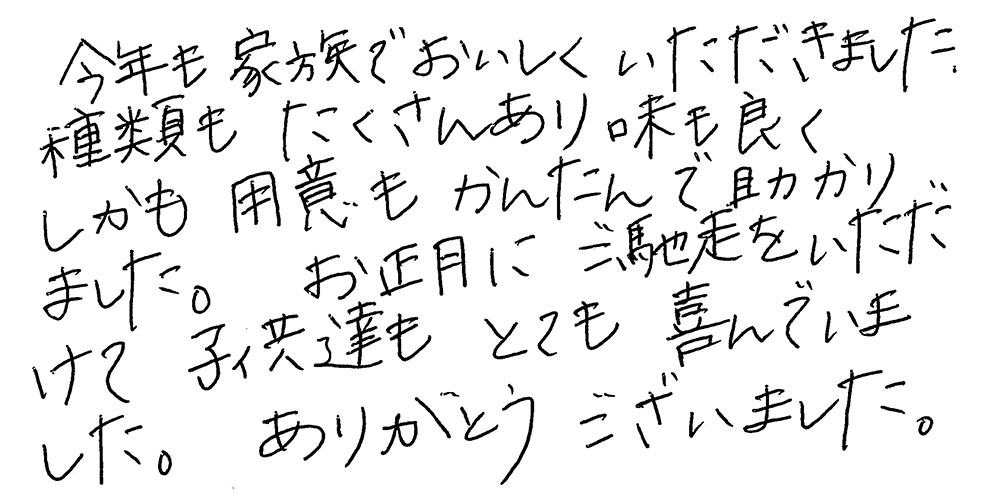 今年も家族でおいしくいただきました.
種類もたくさんあり味も良く
しかも用意もかんたんで助かり
ました。お正月にご馳走をいただ
けて子供達もとても喜んでいま
した。ありがとうございました。